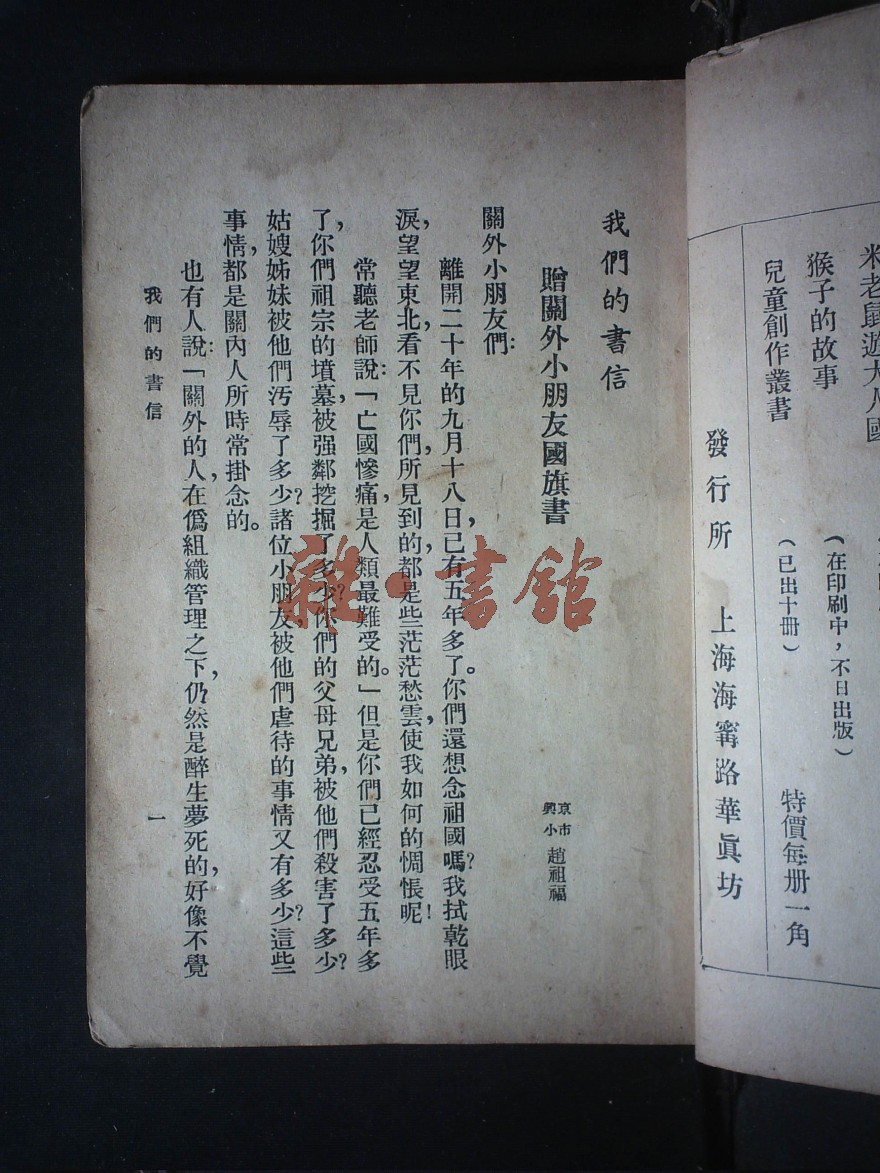 米老鼠遊大人國
猴子的故事
（在印刷中，不日出版）
兒童創作叢書
（已出十册）
特價每册一角
發行所　上海海甯路華眞坊
我們的書信
贈關外小朋友國旗書
京市
興小
趙祖福
關外小朋友們：
離開二十年的九月十八日，已有五年多了。你們還想念祖國嗎？我拭乾眼
淚，望望東北，看不見你們，所見到的，都是些茫茫愁雲，使我如何的惆悵呢！
常聽老師說：「亡國慘痛，是人類最難受的。」但是你們已經忍受五年多
了，你們祖宗的墳墓，被强鄰挖掘了多少？你們的父母兄弟，被他們殺害了多少？
姑嫂姊妹被他們汚辱了多少？諸位小朋友，被他們虐待的事情又有多少？這些
事情，都是關內人所時常掛念的。
也有人說：「關外的人，在僞組織管理之下，仍然是醉生夢死的，好像不覺
我們的書信
一
雜·書館